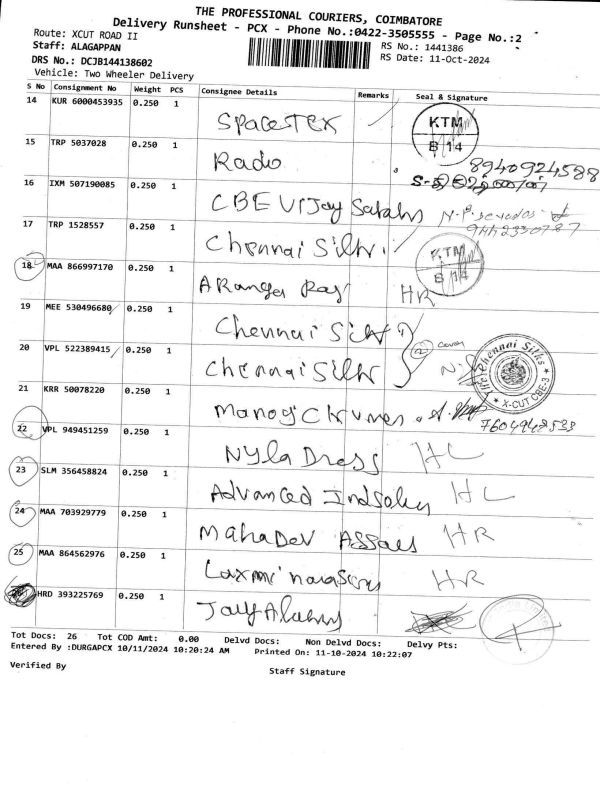 THE PROFESSIONAL COURIERS, COIMBATORE
Delivery Runsheet - PCX - Phone No.:0422-3505555 - Page No.:2
Route: XCUT ROAD II
RS No.: 1441386
Staff: ALAGAPPAN
RS Date: 11-Oct-2024
DRS No.: DCJB144138602
Vehicle: Two Wheeler Delivery
S No Consignment No Weight PCS Consignee Details Remarks Seal & Signature
14 KUR 6000453935 0.250 1 SpacesTEX KTM B 14
15 TRP 5037028 0.250 1 Radio 8940924588
16 IXM 507190085 0.250 1 CBE Vijay
17 TRP 1528557 0.250 1 Chennai Silk KTM B 14
18 MAA 866997170 0.250 1 A Ranga Raj HR
19 MEE 530496680 0.250 1 Chennai Silk
20 VPL 522389415 0.250 1 Chennai Silk The Chennai Silks * X-CUT CBE-3 *
21 KRR 50078220 0.250 1 7604948533
22 VPL 949451259 0.250 1 Nyla Dress HL
23 SLM 356458824 0.250 1 Advanced HL
24 MAA 703929779 0.250 1 Mahadev HR
25 MAA 864562976 0.250 1 HR
26 HRD 393225769 0.250 1
Tot Docs: 26 Tot COD Amt: 0.00 Delvd Docs: Non Delvd Docs: Delvy Pts:
Entered By :DURGAPCX 10/11/2024 10:20:24 AM Printed On: 11-10-2024 10:22:07
Verified By
Staff Signature